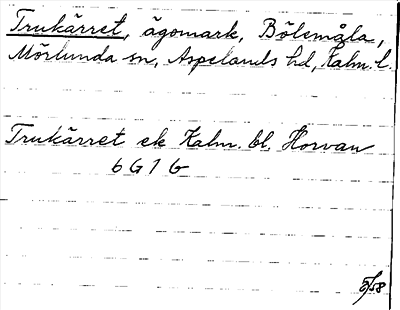 Trukärret, ägomark, Bölemåla,
Mörlunda sn, Aspelands hd, Kalm. l.
Trukärret ek Kalm. bl. Horvan
6G1b